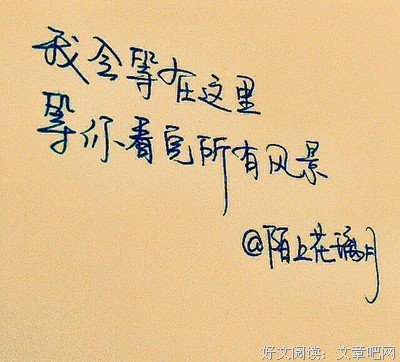 我会等在这里
等你看完所有风景
@陌上花满月
好文阅读：文章吧网